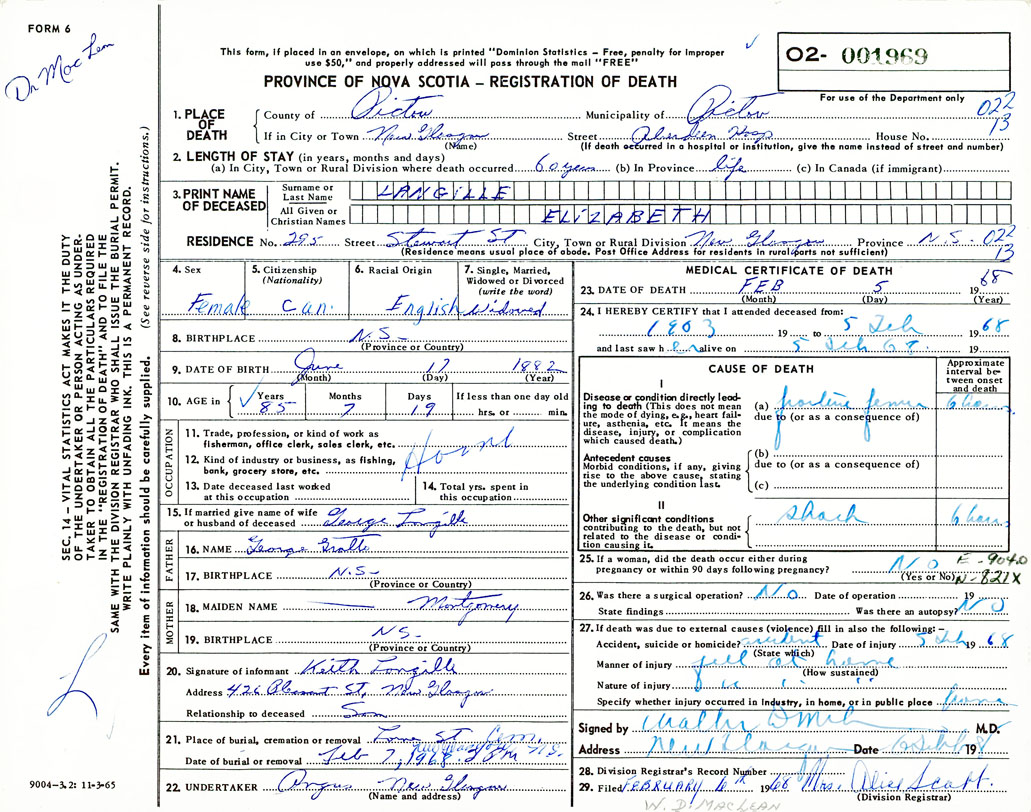 FORM 6
Dr MacLean
This form, if placed in an envelope, on which is printed "Dominion Statistics – Free, penalty for improper
use $50," and properly addressed will pass through the mail "FREE"
O2- 001969
PROVINCE OF NOVA SCOTIA – REGISTRATION OF DEATH
For use of the Department only
022
13
1. PLACE OF DEATH
County of Pictou Municipality of Pictou
If in City or Town New Glasgow Street Aberdeen Hosp House No.
(Name) (If death occurred in a hospital or institution, give the name instead of street and number)
2. LENGTH OF STAY (in years, months and days)
(a) In City, Town or Rural Division where death occurred 60 years (b) In Province life (c) In Canada (if immigrant)
3. PRINT NAME OF DECEASED
Surname or Last Name LANGILLE
All Given or Christian Names ELIZABETH
RESIDENCE No. 295 Street Stewart St City, Town or Rural Division New Glasgow Province N.S. 022
(Residence means usual place of abode. Post Office Address for residents in rural parts not sufficient) 13
4. Sex
Female
5. Citizenship
(Nationality)
Can.
6. Racial Origin
English
7. Single, Married,
Widowed or Divorced
(write the word)
Widowed
8. BIRTHPLACE N.S.
(Province or Country)
9. DATE OF BIRTH June 17 1882
(Month) (Day) (Year)
10. AGE in Years Months Days If less than one day old
85 7 19 hrs. or min.
OCCUPATION
11. Trade, profession, or kind of work as
fisherman, office clerk, sales clerk, etc.
12. Kind of industry or business, as fishing,
bank, grocery store, etc.
13. Date deceased last worked
at this occupation
14. Total yrs. spent in
this occupation
15. If married give name of wife
or husband of deceased George Langille
FATHER
16. NAME George
17. BIRTHPLACE N.S.
(Province or Country)
MOTHER
18. MAIDEN NAME Montgomery
19. BIRTHPLACE NS
(Province or Country)
20. Signature of informant Keith Langille
Address 426 Pleasant St, New Glasgow
Relationship to deceased Son
21. Place of burial, cremation or removal
Date of burial or removal Feb 7, 1968
22. UNDERTAKER Angus New Glasgow
(Name and address)
MEDICAL CERTIFICATE OF DEATH
23. DATE OF DEATH FEB 5 1968
(Month) (Day) (Year)
24. I HEREBY CERTIFY that I attended deceased from:
1903 19 to 5 Feb 1968
and last saw her alive on 5 Feb 68 19
CAUSE OF DEATH
Approximate
interval be-
tween onset
and death
I
Disease or condition directly lead-
ing to death (This does not mean
the mode of dying, e.g., heart fail-
ure, asthenia, etc. It means the
disease, injury, or complication
which caused death.)
(a) fracture femur 6 hours
due to (or as a consequence of)
Antecedent causes
Morbid conditions, if any, giving
rise to the above cause, stating
the underlying condition last.
(b)
due to (or as a consequence of)
(c)
II
Other significant conditions
contributing to the death, but not
related to the disease or condi-
tion causing it.
shock 6 hours
25. If a woman, did the death occur either during
pregnancy or within 90 days following pregnancy? NO
(Yes or No)
E-904.0
N-821X
26. Was there a surgical operation? No Date of operation 19
State findings Was there an autopsy? NO
27. If death was due to external causes (violence) fill in also the following: –
Accident, suicide or homicide? accident Date of injury 5 Feb 1968
(State which)
Manner of injury fell at home
(How sustained)
Nature of injury
Specify whether injury occurred in Industry, in home, or in public place
Signed by M.D.
Address New Glasgow Date 6 Feb 1968
28. Division Registrar's Record Number
29. Filed FEBRUARY 1968 Mrs. Alice Scott.
(Division Registrar)
W. D. MACLEAN
SEC. 14 – VITAL STATISTICS ACT MAKES IT THE DUTY
OF THE UNDERTAKER OR PERSON ACTING AS UNDER-
TAKER TO OBTAIN ALL THE PARTICULARS REQUIRED
IN THE "REGISTRATION OF DEATH" AND TO FILE THE
SAME WITH THE DIVISION REGISTRAR WHO SHALL ISSUE THE BURIAL PERMIT.
WRITE PLAINLY WITH UNFADING INK. THIS IS A PERMANENT RECORD.
Every item of information should be carefully supplied. (See reverse side for instructions.)
9004–3.2: 11-3-65